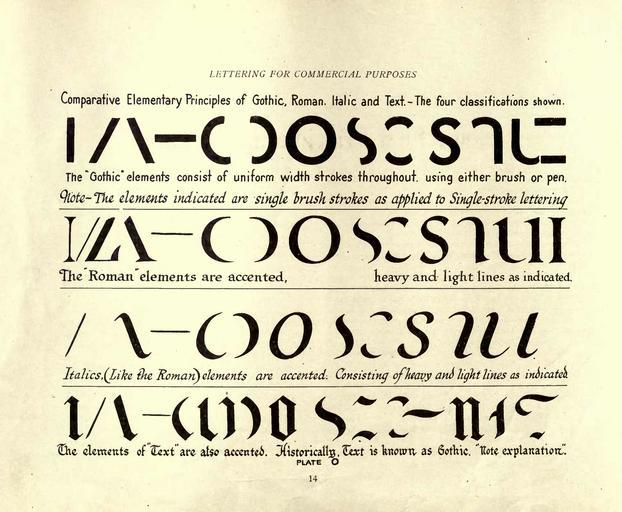 LETTERING FOR COMMERCIAL PURPOSES
Comparative Elementary Principles of Gothic, Roman. Italic and Text.-The four classifications shown.
The "Gothic" elements consist of uniform width strokes throughout. using either brush or pen.
Note-The elements indicated are single brush strokes as applied to Single-stroke lettering
The "Roman" elements are accented, heavy and light lines as indicated.
Italics,(Like the Roman) elements are accented. Consisting of heavy and light lines as indicated
The elements of "Text" are also accented. Historically, Text is known as Gothic. "Note explanation".
PLATE O
14